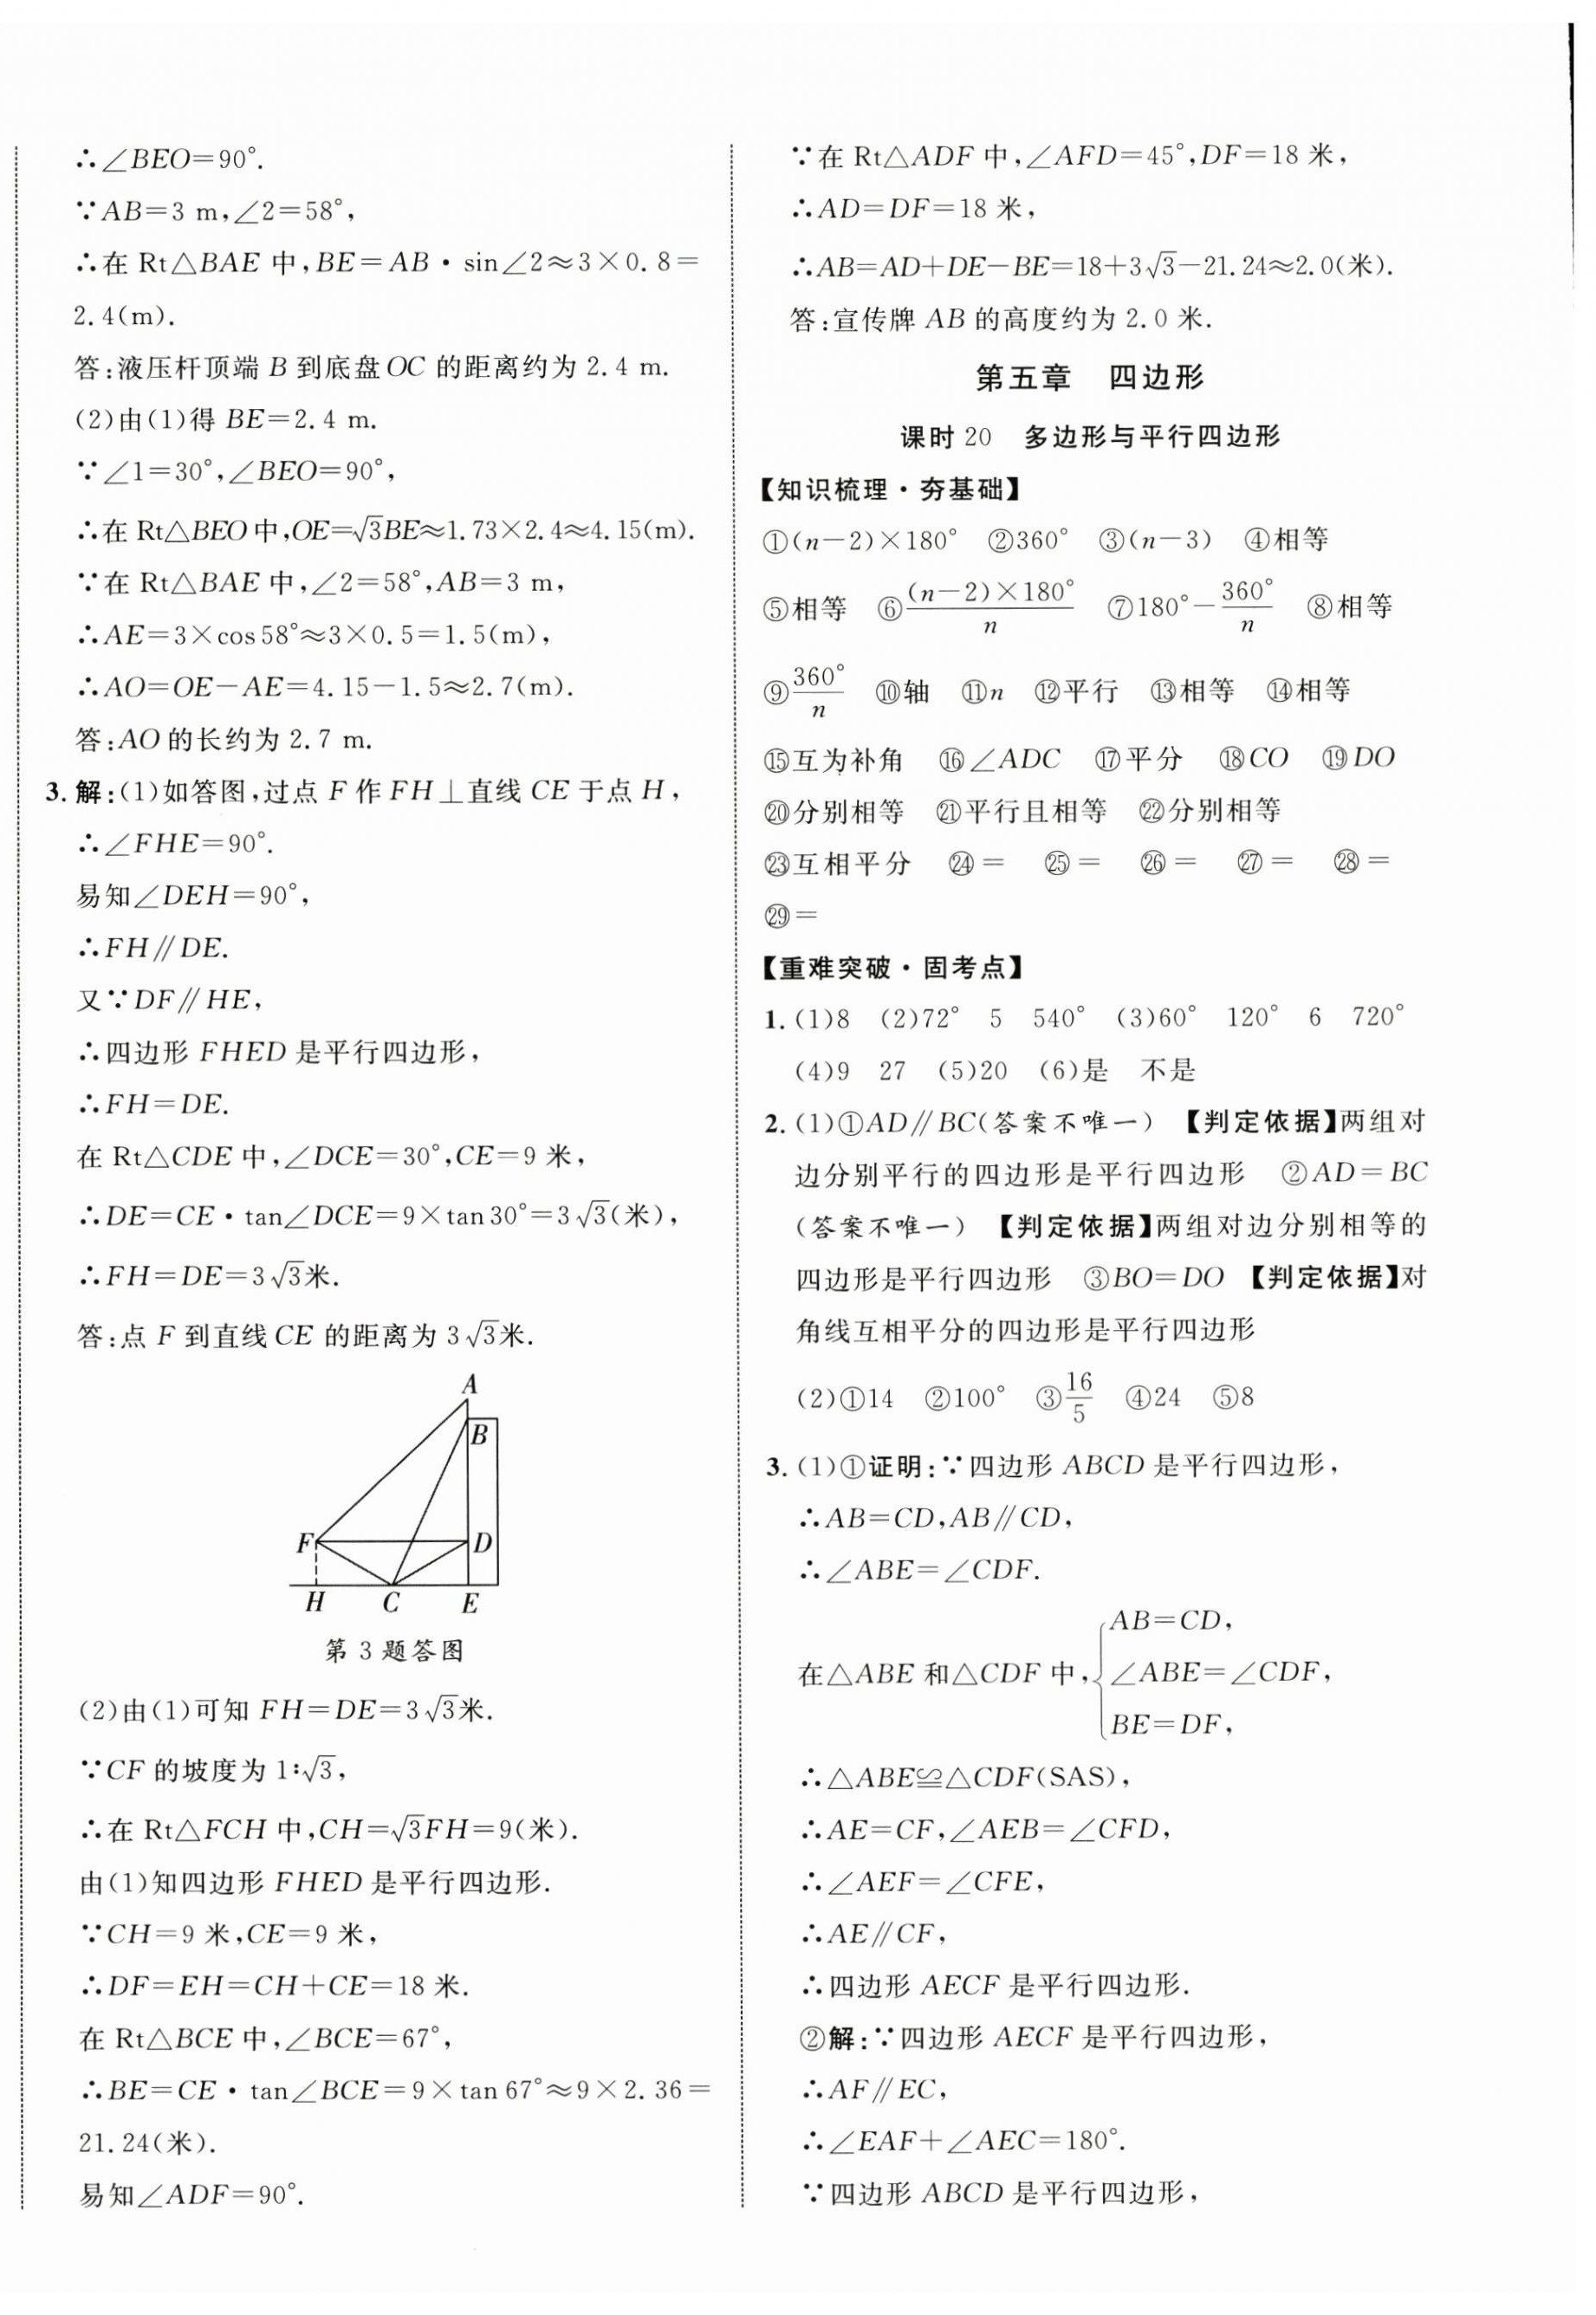 ∴∠BEO=90°.
∵AB=3 m,∠2=58°,
∴在 Rt△BAE 中,BE=AB·sin∠2≈3×0.8=
2.4(m).
答:液压杆顶端 B 到底盘OC 的距离约为 2.4 m.
(2)由(1)得 BE=2.4 m.
∵∠1=30°,∠BEO=90°,
∴在 Rt△BEO中,OE=√3BE≈1.73×2.4≈4.15(m).
∵在 Rt△BAE 中,∠2=58°,AB=3 m,
∴AE=3×cos58°≈3×0.5=1.5(m),
∴AO=OE-AE=4.15-1.5≈2.7(m).
答:AO的长约为 2.7 m.
3.解:(1)如答图,过点 F 作 FH⊥直线 CE 于点 H,
∴∠FHE=90°.
易知∠DEH=90°,
∴FH∥DE.
又∵DF∥HE,
∴四边形 FHED 是平行四边形,
∴FH=DE.
在 Rt△CDE 中,∠DCE=30°,CE=9 米,
∴DE=CE·tan∠DCE=9×tan30°=3√3(米),
∴FH=DE=3√3米.
答:点 F 到直线CE 的距离为 3√3米.
A
B
F
D
H
C
E
第 3 题答图
(2)由(1)可知 FH=DE=3√3米.
∵CF 的坡度为 1∶√3,
∴在 Rt△FCH 中,CH=√3FH=9(米).
由(1)知四边形 FHED 是平行四边形.
∵CH=9 米,CE=9 米,
∴DF=EH=CH+CE=18 米.
在 Rt△BCE 中,∠BCE=67°,
∴BE=CE·tan∠BCE=9×tan 67°≈9×2.36=
21.24(米).
易知∠ADF=90°.
∵在 Rt△ADF 中,∠AFD=45°,DF=18 米,
∴AD=DF=18 米,
∴AB=AD+DE-BE=18+3√3-21.24≈2.0(米).
答:宣传牌 AB 的高度约为 2.0 米.
第五章 四边形
课时 20 多边形与平行四边形
【知识梳理·夯基础】
①(n-2)×180° ②360° ③(n-3) ④相等
⑤相等 ⑥(n-2)×180°/n ⑦180°-360°/n ⑧相等
⑨360°/n ⑩轴 ⑪n ⑫平行 ⑬相等 ⑭相等
⑮互为补角 ⑯∠ADC ⑰平分 ⑱CO ⑲DO
⑳分别相等 ㉑平行且相等 ㉒分别相等
㉓互相平分 ㉔= ㉕= ㉖= ㉗= ㉘=
㉙=
【重难突破·固考点】
1.(1)8 (2)72° 5 540° (3)60° 120° 6 720°
(4)9 27 (5)20 (6)是 不是
2.(1)①AD∥BC(答案不唯一) 【判定依据】两组对
边分别平行的四边形是平行四边形 ②AD=BC
(答案不唯一) 【判定依据】两组对边分别相等的
四边形是平行四边形 ③BO=DO 【判定依据】对
角线互相平分的四边形是平行四边形
(2)①14 ②100° ③16/5 ④24 ⑤8
3.(1)①证明:∵四边形 ABCD 是平行四边形,
∴AB=CD,AB∥CD,
∴∠ABE=∠CDF.
AB=CD,
在△ABE 和△CDF 中,{∠ABE=∠CDF,
BE=DF,
∴△ABE≌△CDF(SAS),
∴AE=CF,∠AEB=∠CFD,
∴∠AEF=∠CFE,
∴AE∥CF,
∴四边形 AECF 是平行四边形.
②解:∵四边形 AECF 是平行四边形,
∴AF∥EC,
∴∠EAF+∠AEC=180°.
∵四边形 ABCD 是平行四边形,